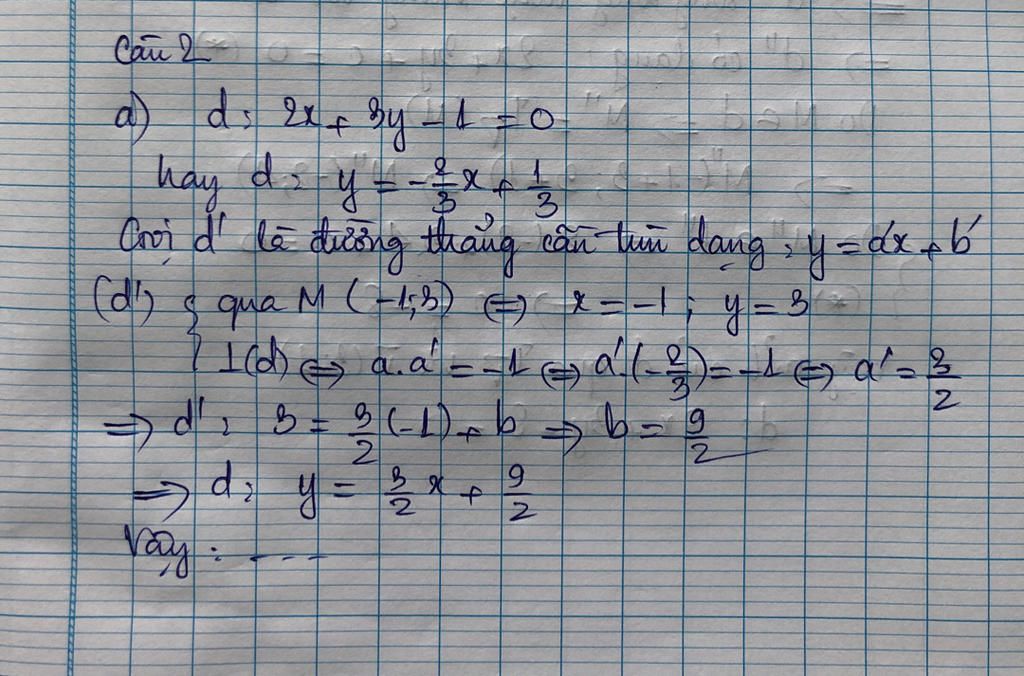 Câu 2
a) d: 2x + 3y - 1 = 0
hay d: y = -2/3 x + 1/3
Gọi d' là đường thẳng cần tìm dạng: y = a'x + b'
(d') { qua M (-1;3) ⇔ x = -1; y = 3
⊥(d) ⇔ a.a' = -1 ⇔ a'.(-2/3) = -1 ⇔ a' = 3/2
⇒ d': 3 = 3/2 (-1) + b ⇒ b = 9/2
⇒ d: y = 3/2 x + 9/2
Vậy: ----